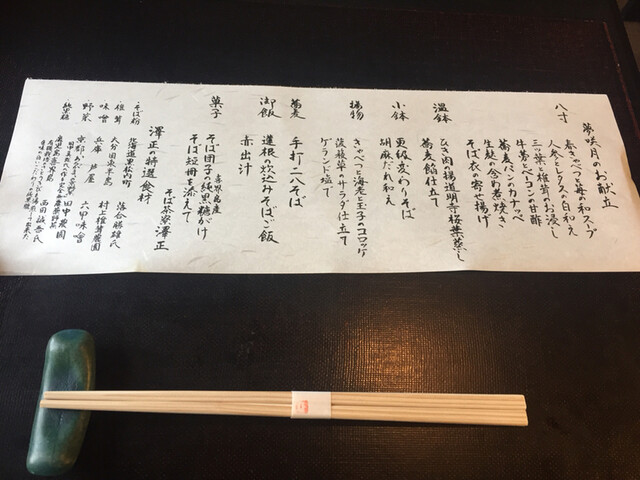 夢咲月のお献立
八寸
春きゃべつと苺の和スープ
人参とレタスの白和え
三ツ葉と椎茸のお浸し
牛蒡とベーコンの甘酢
蕎麦パンのカナッペ
生麩の含め煮焼き
そば衣の寄せ揚げ
温鉢
ひき肉揚道明寺桜葉蒸し
蕎麦餡仕立て
小鉢
更級変わりそば
胡麻だれ和え
揚物
きゃべつと海老と玉子のコロッケ
菠薐草のサラダ仕立て
ゲランド塩で
蕎麦
手打ち二八そば
御飯
蓮根の炊込みそばご飯
赤出汁
菓子
喜界島産
そば団子の純黒糖がけ
そば短冊を添えて
そば茶寮 澤正
澤正の特選食材
そば粉
北海道東秋の町
落合勝雄氏
椎茸
大分国東半島
村上椎茸農園
味噌
兵庫 芦屋
六甲味噌
野菜
京都
田中農園
純黒糖
鹿児島喜界島
西田誠吾氏